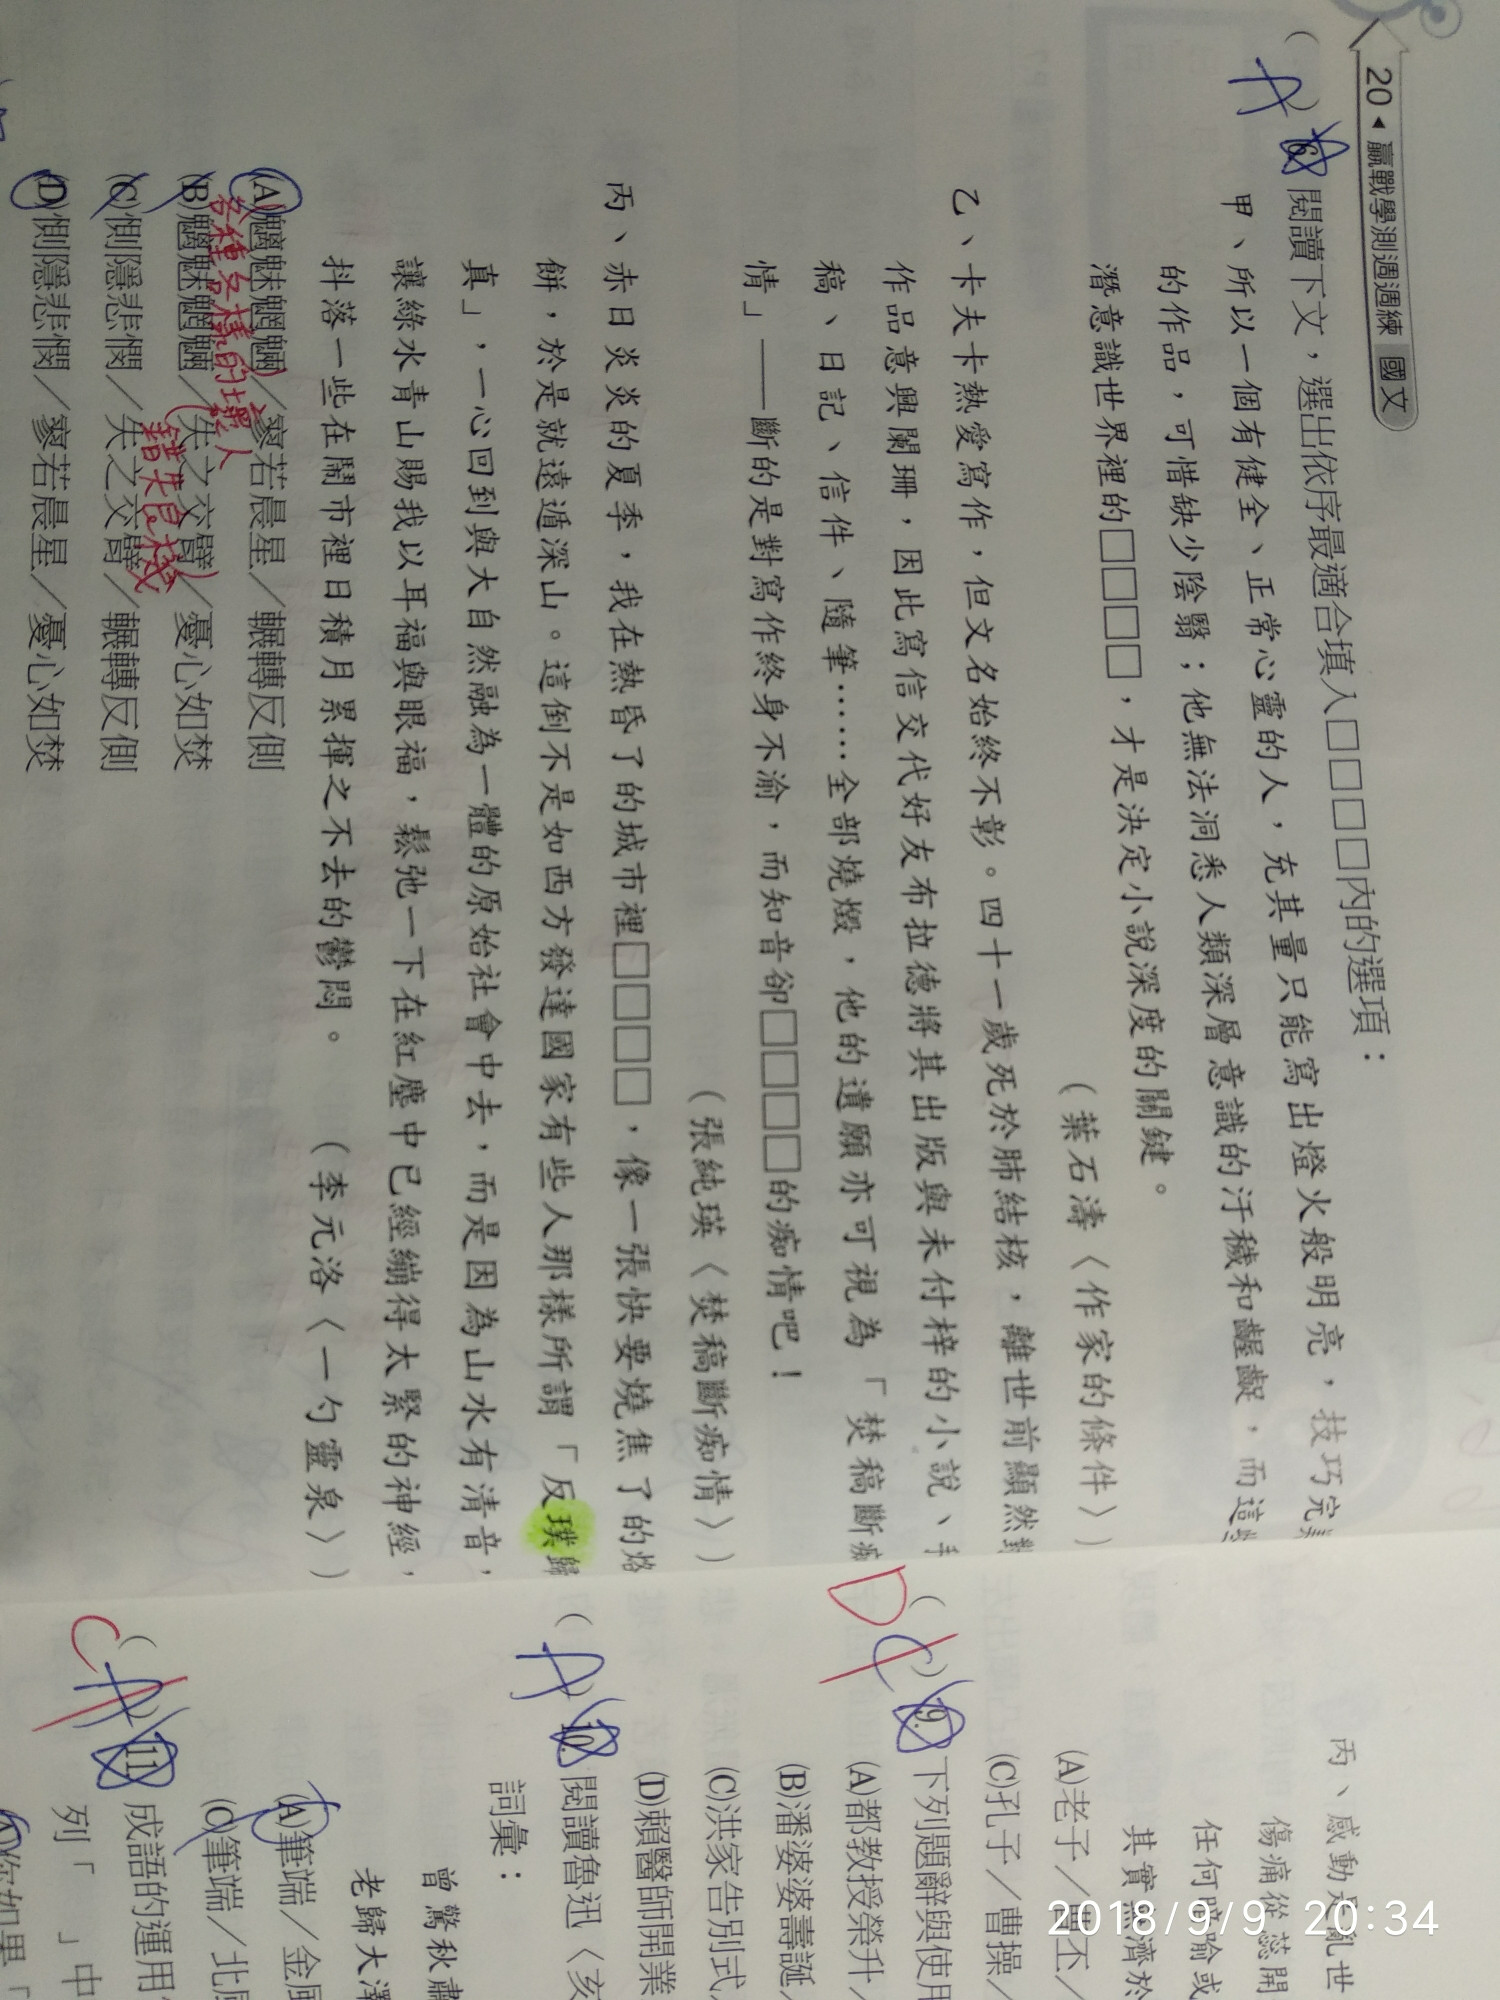 20 ◂ 贏戰學測週週練 國文
( A ) 6. 閱讀下文，選出依序最適合填入□□□□內的選項：
甲、所以一個有健全、正常心靈的人，充其量只能寫出燈火般明亮，技巧完美
的作品，可惜缺少陰翳；他無法洞悉人類深層意識的汙穢和齷齪，而這
潛意識世界裡的□□□□，才是決定小說深度的關鍵。
（葉石濤〈作家的條件〉）
乙、卡夫卡熱愛寫作，但文名始終不彰。四十一歲死於肺結核，離世前顯然對
作品意興闌珊，因此寫信交代好友布拉德將其出版與未付梓的小說、手
稿、日記、信件、隨筆……全部燒燬，他的遺願亦可視為「焚稿斷痴
情」——斷的是對寫作終身不渝，而知音卻□□□□的痴情吧！
（張純瑛〈焚稿斷痴情〉）
丙、赤日炎炎的夏季，我在熱昏了的城市裡□□□□，像一張快要燒焦了的烙
餅，於是就遠遁深山。這倒不是如西方發達國家有些人那樣所謂「反璞歸
真」，一心回到與大自然融為一體的原始社會中去，而是因為山水有清音，
讓綠水青山賜我以耳福與眼福，鬆弛一下在紅塵中已經繃得太緊的神經，
抖落一些在鬧市裡日積月累揮之不去的鬱悶。　（李元洛〈一勺靈泉〉）
(A)魑魅魍魎／寥若晨星／輾轉反側
各種各樣的壞人
(B)魑魅魍魎／失之交臂／憂心如焚
錯失良機
(C)惻隱悲憫／失之交臂／輾轉反側
(D)惻隱悲憫／寥若晨星／憂心如焚
丙、感動是亂世
傷痛從蕊開
任何暗喻或
其實無濟於
(A)老子／曹丕／
(C)孔子／曹操／
D ( C ) 9. 下列題辭與使用
(A)都教授榮升／
(B)潘婆婆壽誕／
(C)洪家告別式／
(D)賴醫師開業
( A ) 10. 閱讀魯迅〈亥
詞彙：
曾驚秋肅
老歸大澤
(A)筆端／金風
(C)筆端／北
C ( A ) 11. 成語的運用
列「　」中
(A)你如果「
2018/9/9 20:34